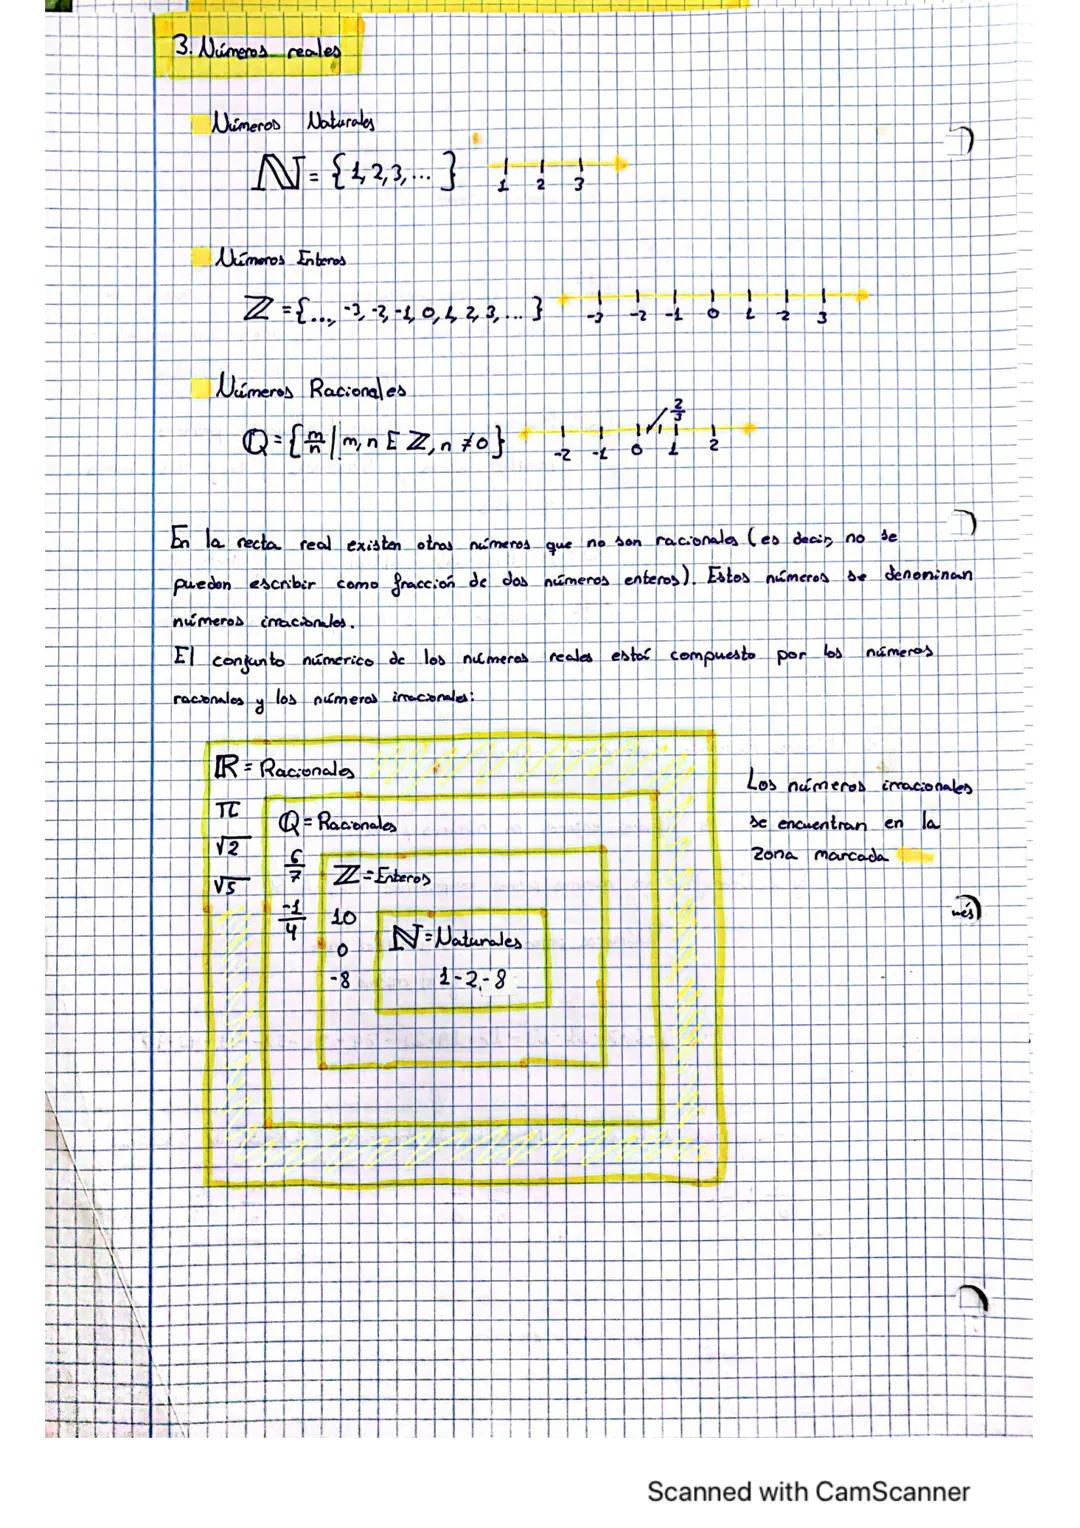 3. Números reales
Números Naturales
ℕ = {1,2,3,...}
1 2 3
Números Enteros
ℤ = {..., -3,-2,-1,0,1,2,3,...}
-3 -2 -1 0 1 2 3
Números Racionales
ℚ = {m/n | m,n E ℤ, n ≠ 0}
2/3
-2 -1 0 1 2
En la recta real existen otros números que no son racionales (es decir, no se
pueden escribir como fracción de dos números enteros). Estos números se denominan
números irracionales.
El conjunto númerico de los números reales está compuesto por los números
racionales y los números irracionales:
ℝ = Racionales
π
√2
√5
ℚ = Racionales
6/7
-1/4
ℤ = Enteros
10
0
-8
ℕ = Naturales
1-2,-8
Los números irracionales
se encuentran en la
zona marcada
nés
Scanned with CamScanner